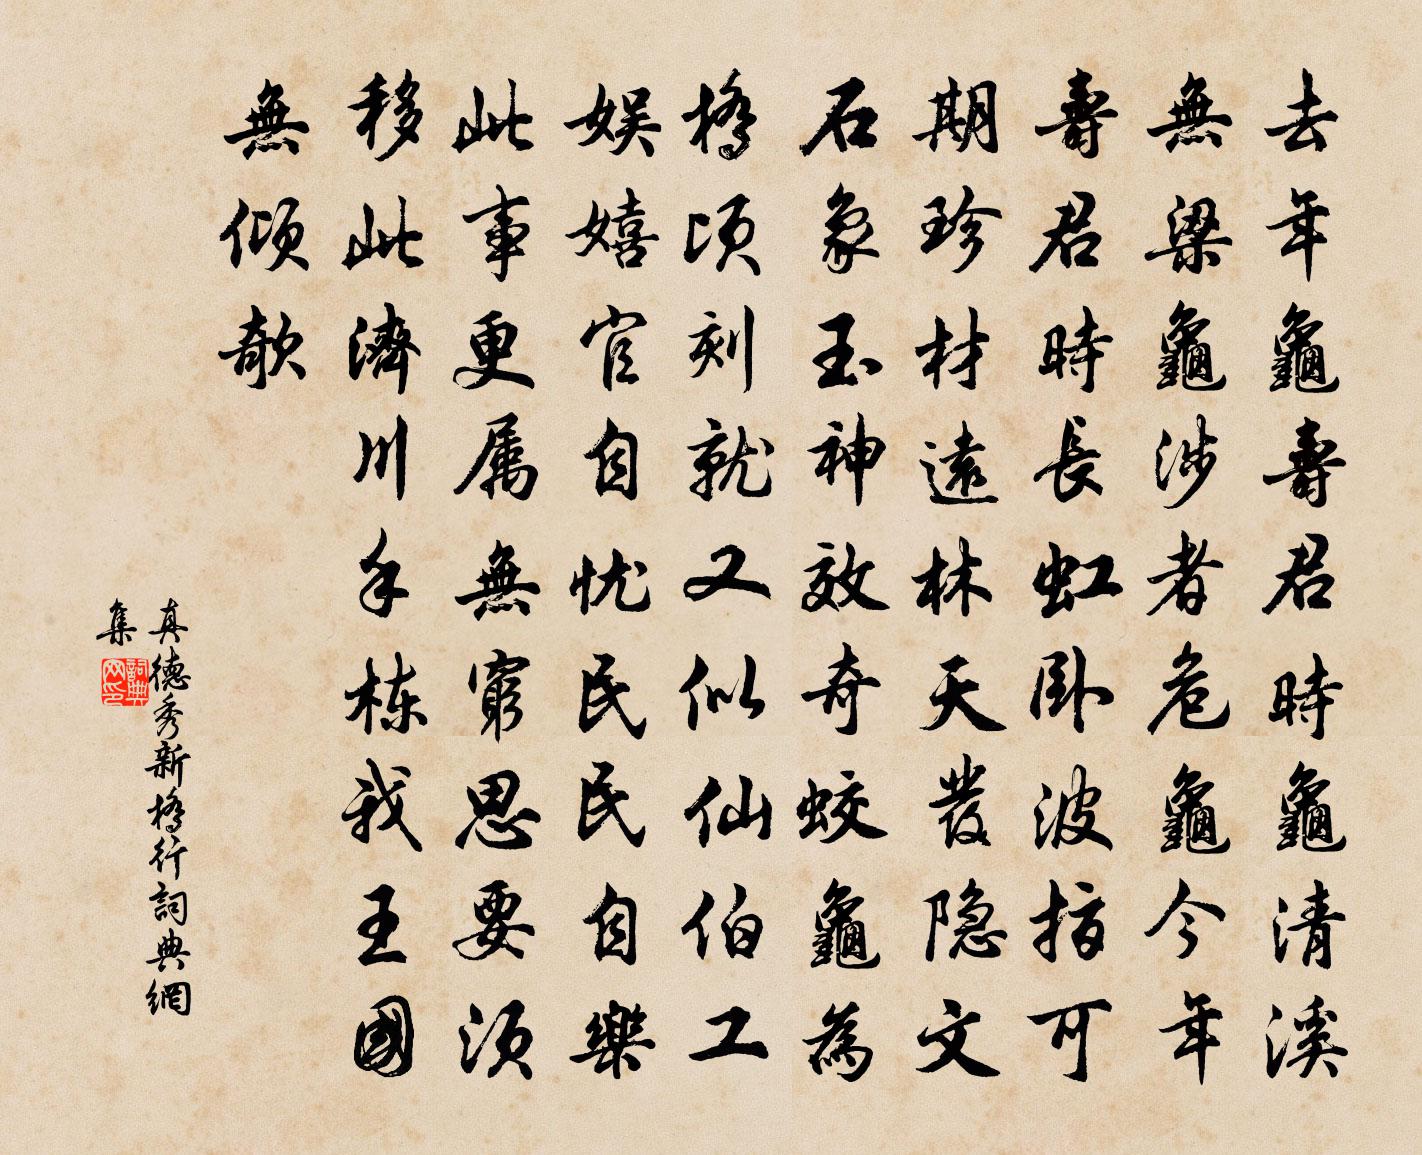 去年龜壽君時龜清溪
無梁龜涉者危龜今年
壽君時長虹臥波指可
期珍材遠林天發隐文
石象玉神效奇蛟龜為
橋頃刻就又似仙伯工
娱嬉官自忧民民自樂
此事更属無窮思要須
移此濟川手栋我王國
無傾欹
真德秀新橋行詞典網
集
詞典
网印